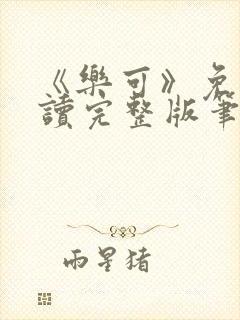 《樂可》免
讀完整版筆
雨星猪